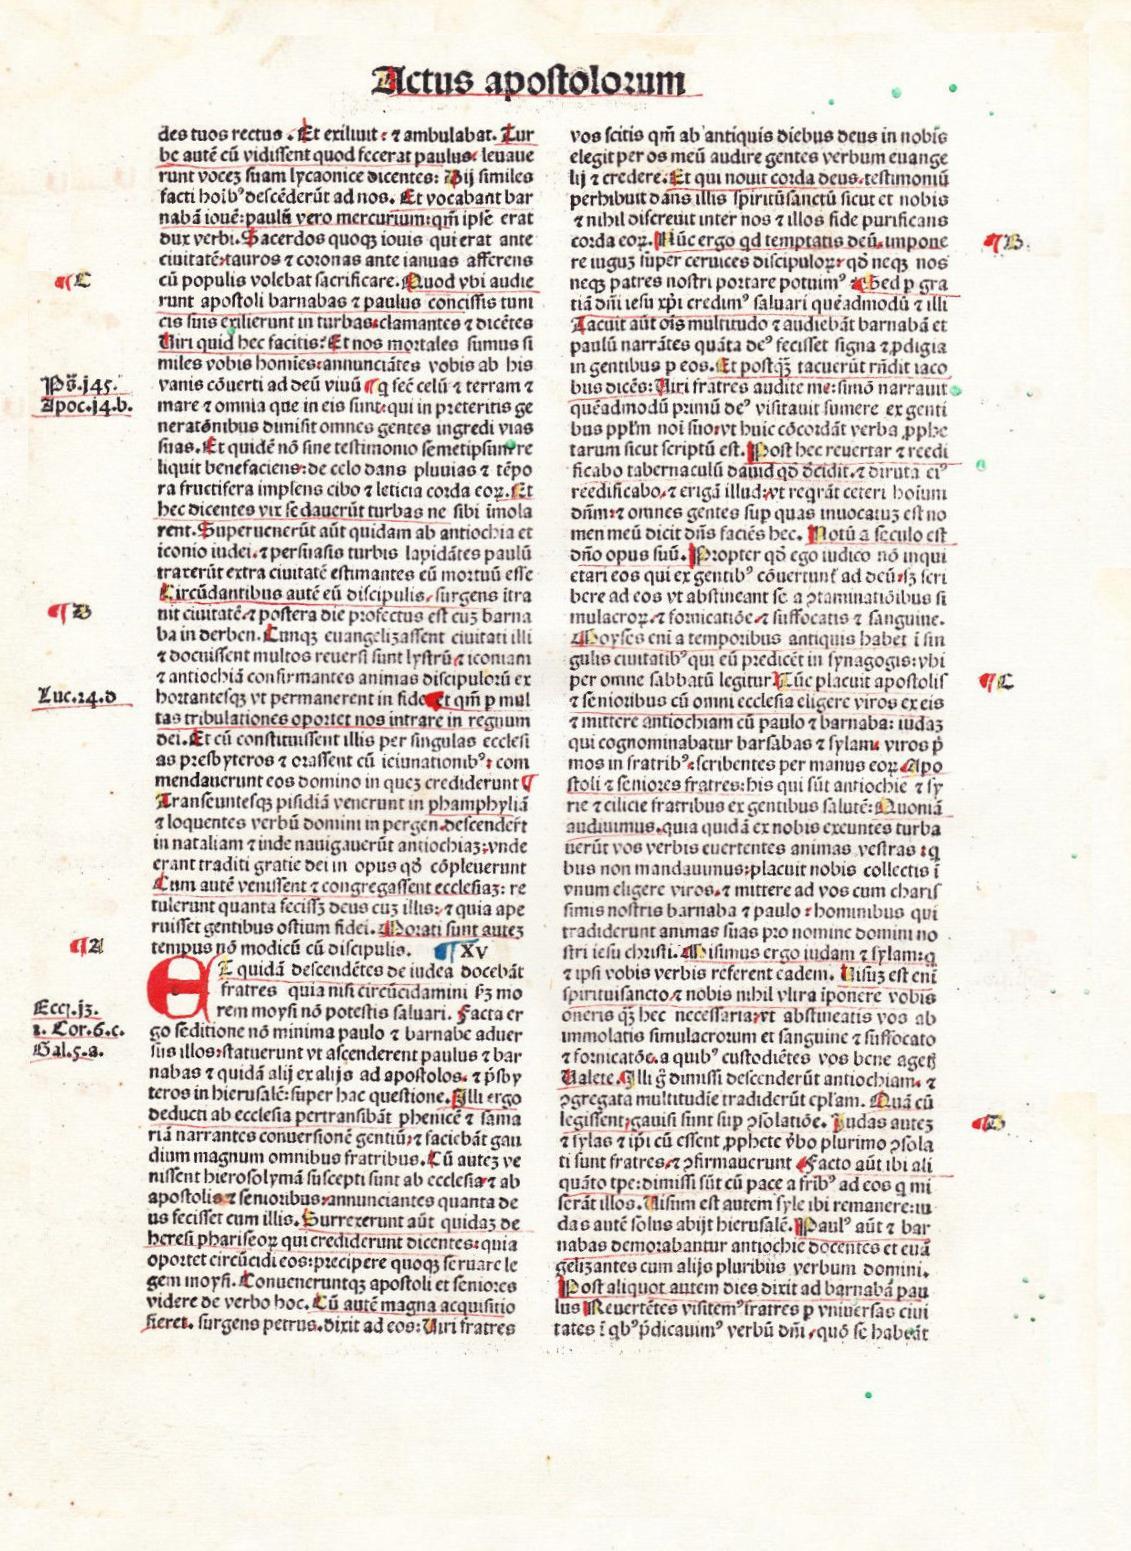 Actus apostolorum
des tuos rectus. Et exiliuit: ⁊ ambulabat. Tur
be autē cū vidissent quod fecerat paulus: leuaue
runt vocez suam lycaonice dicentes: Dij similes
facti hoibꝰ descēderūt ad nos. Et vocabant bar
nabā iouē: paulū vero mercurium: qm̄ ipse erat
dux verbi. Sacerdos quoqꝫ iouis qui erat ante
ciuitatē: tauros ⁊ coronas ante ianuas afferens
cū populis volebat sacrificare. Quod vbi audie
¶ C
runt apostoli barnabas ⁊ paulus concissis tuni
cis suis exilierunt in turbas: clamantes ⁊ dicētes
Uiri quid hec facitis? Et nos mortales sumus si
miles vobis homies: annunciātes vobis ab his
vanis cōuerti ad deū viuū ¶ q fec̄ celū ⁊ terram ⁊
Ps̄.145.
mare ⁊ omnia que in eis sunt: qui in preteritis ge
Apoc.14.b.
neratōnibus dimisit omnes gentes ingredi vias
suas. Et quidē nō sine testimonio semetipsum re
liquit benefaciens: de celo dans pluuias ⁊ tēpo
ra fructifera implens cibo ⁊ leticia corda eoꝝ. Et
hec dicentes vix sedauerūt turbas ne sibi imola
rent. Superuenerūt aūt quidam ab antiochia et
iconio iudei. ⁊ persuasis turbis lapidātes paulū
traxerūt extra ciuitatē estimantes eū mortuū esse
Circūdantibus autē eū discipulis, surgens itra
¶ D
uit ciuitatē. ⁊ postera die profectus est cuꝫ barna
ba in derben. Cunqꝫ euangelizassent ciuitati illi
⁊ docuissent multos reuersi sunt lystrū ⁊ iconium
⁊ antiochiā confirmantes animas discipulorū ex
Luc.24.d
hortantesqꝫ vt permanerent in fide: et qm̄ p mul
tas tribulationes oportet nos intrare in regnum
dei. Et cū constituissent illis per singulas ecclesi
as presbyteros ⁊ orassent cū ieiunationibꝰ: com
mendauerunt eos domino in quez crediderunt ¶
Transeuntesqꝫ pisidiā venerunt in phamphyliā
⁊ loquentes verbū domini in pergen. descenderūt
in nataliam ⁊ inde nauigauerūt antiochiaꝫ: vnde
erant traditi gratie dei in opus qd̄ cōpleuerunt
Cum autē venissent ⁊ congregassent ecclesiaꝫ: re
tulerunt quanta fecissꝫ deus cuꝫ illis: ⁊ quia ape
ruisset gentibus ostium fidei. Morati sunt auteꝫ
tempus nō modicū cū discipulis. ¶ XV
¶ A
ET quidā descendētes de iudea docebāt
fratres quia nisi circūcidamini sꝫ mo
Eccj.j3.
rem moysi nō potestis saluari. Facta er
1. Cor.6.c.
go seditione nō minima paulo ⁊ barnabe aduer
Gal.5.a.
sus illos: statuerunt vt ascenderent paulus ⁊ bar
nabas ⁊ quidā alij ex alijs ad apostolos. ⁊ p̄sby
teros in hierusalē: super hac questione. Illi ergo
deducti ab ecclesia pertransibāt phenicē ⁊ sama
riā narrantes conuersionē gentiū: ⁊ faciebāt gau
dium magnum omnibus fratribus. Cū auteꝫ ve
nissent hierosolymā suscepti sunt ab ecclesia: ⁊ ab
apostolis ⁊ senioribus: annunciantes quanta de
us fecisset cum illis. Surrexerunt aūt quidaꝫ de
heresi phariseoꝝ qui crediderunt dicentes: quia
oportet circūcidi eos: precipere quoqꝫ seruare le
gem moysi. Conueneruntqꝫ apostoli et seniores
videre de verbo hoc. Cū autē magna acquisitio
fieret. surgens petrus. dixit ad eos: Uiri fratres
vos scitis qm̄ ab antiquis diebus deus in nobis
elegit per os meū audire gentes verbum euange
lij ⁊ credere. Et qui nouit corda deus. testimoniū
perhibuit dans illis spiritūsanctū sicut et nobis
⁊ nihil discreuit inter nos ⁊ illos fide purificans
corda eoꝝ. Nūc ergo qd temptatis deū. impone
¶ B.
re iuguꝫ super ceruices discipuloꝝ: qd̄ neqꝫ nos
neqꝫ patres nostri portare potuimꝰ Sed p gra
tiā dn̄i iesu xp̄i credimꝰ saluari quēadmodū ⁊ illi
Tacuit aūt ois multitudo ⁊ audiebāt barnabā et
paulū narrātes quāta deꝰ fecisset signa ⁊ ꝓdigia
in gentibus p eos. Et postqꝫ tacuerūt rn̄dit iaco
bus dicēs: Uiri fratres audite me: simō narrauit
quēadmodū primū deꝰ visitauit sumere ex genti
bus pplm noi suo: vt huic cōcordāt verba ꝓphe
tarum sicut scriptū est. Post hec reuertar ⁊ reedi
ficabo tabernaculū dauid qd̄ decidit. ⁊ diruta eiꝰ
reedificabo. ⁊ erigā illud: vt reqrāt ceteri hoium
dn̄m: ⁊ omnes gentes sup quas inuocatuꝫ est no
men meū dicit dn̄s faciēs hec. Notū a seculo est
dn̄o opus suū. Propter qd̄ ego iudico nō inqui
etari eos qui ex gentibꝰ cōuertunt̄ ad deū: sꝫ scri
bere ad eos vt abstineant se a ꝯtaminatiōibus si
mulacroꝝ. ⁊ fornicatiōe. ⁊ suffocatis ⁊ sanguine.
Moyses eni a temporibus antiquis habet ī sin
gulis ciuitatibꝰ qui eū predicēt in synagogis: vbi
per omne sabbatū legitur. Tūc placuit apostolis
¶ C
⁊ senioribus cū omni ecclesia eligere viros ex eis
⁊ mittere antiochiam cū paulo ⁊ barnaba: iudaꝫ
qui cognominabatur barsabas ⁊ sylam. viros p̄
mos in fratribꝰ: scribentes per manus eoꝝ. Apo
stoli ⁊ seniores fratres: his qui sūt antiochie ⁊ sy
rie ⁊ cilicie fratribus ex gentibus salutē: Quoniā
audiuimus. quia quidā ex nobis exeuntes turba
uerūt vos verbis euertentes animas vestras: q
bus non mandauimus: placuit nobis collectis ī
vnum eligere viros. ⁊ mittere ad vos cum charis
simis nostris barnaba ⁊ paulo: hominibus qui
tradiderunt animas suas pro nomine domini no
stri iesu christi. Misimus ergo iudam ⁊ sylam: q
⁊ ipsi vobis verbis referent eadem. Uisuꝫ est eni
spirituisancto: ⁊ nobis nihil vltra iponere vobis
oneris qꝫ hec necessaria: vt abstineatis vos ab
immolatis simulacrorum et sanguine ⁊ suffocato
⁊ fornicatōe. a quibꝰ custodiētes vos bene agetꝭ
Ualete. Illi g̊ dimissi descenderūt antiochiam. ⁊
ꝯgregata multitudie tradiderūt ep̄lam. Quā cū
legissent: gauisi sunt sup ꝯsolatiōe. Judas auteꝫ
¶ D
⁊ sylas ⁊ ip̄i cū essent ꝓphete v̄bo plurimo ꝯsola
ti sunt fratres. ⁊ ꝯfirmauerunt Facto aūt ibi ali
quāto tpe: dimissi sūt cū pace a fribꝰ ad eos q mi
serāt illos. Uisum est autem syle ibi remanere: iu
das autē solus abijt hierusalē. Paulꝰ aūt ⁊ bar
nabas demorabantur antiochie docentes et euā
gelizantes cum alijs pluribus verbum domini.
Post aliquot autem dies dixit ad barnabā pau
lus Reuertētes visitemꝰ fratres p vniuersas ciui
tates ī qbꝰ p̄dicauimꝰ verbū dn̄i. quō se habeāt